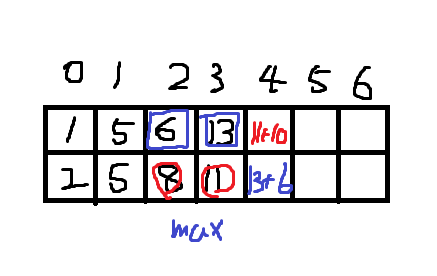 0 1 2 3 4 5 6
1 5 6 13 11+10
2 5 8 11 13+6
max